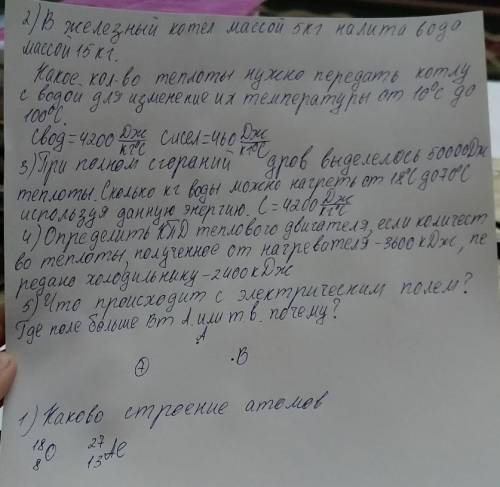 2) В железный котел массой 5кг налита вода
массой 15кг.
Какое кол-во теплоты нужно передать котлу
с водой для изменение их температуры от 10°С до
100°С.
Свод=4200 Дж/кг°С Сжел=460 Дж/кг°С
3) При полном сгораний дров выделелось 50000Дж
теплоты. Сколько кг воды можно нагреть от 18°С до 70°С
используя данную энергию. С=4200 Дж/кг°С
4) Определить КПД теплового двигателя, если количест
во теплоты, полученное от нагревателя -3600 кДж, пе
редано холодильнику -2400кДж
5) Что происходит с электрическим полем?
Где поле больше Вт А. или т В. почему?
А
+ .В
1) Каково строение атомов
18 8 O 27 13 Al